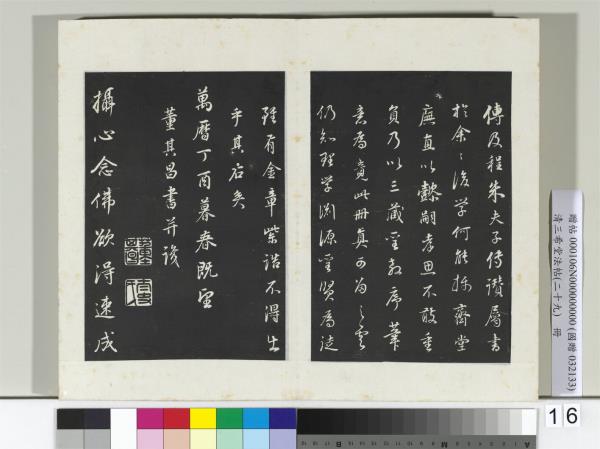 傳及程朱夫子傳讚屬書
於余余後學何能揚齋堂
廡直以懿嗣孝思不敢重
負乃以三藏聖教序筆
意為竟此冊真可為之云
仍知理学渊源聖賢為徒
雖有金章紫誥不得出
乎其右矣
萬曆丁酉暮春既望
董其昌書并跋
攝心念佛欲得速成
贈帖 000106N000000000 (國贈 032133)
清三希堂法帖(二十九) 冊
16